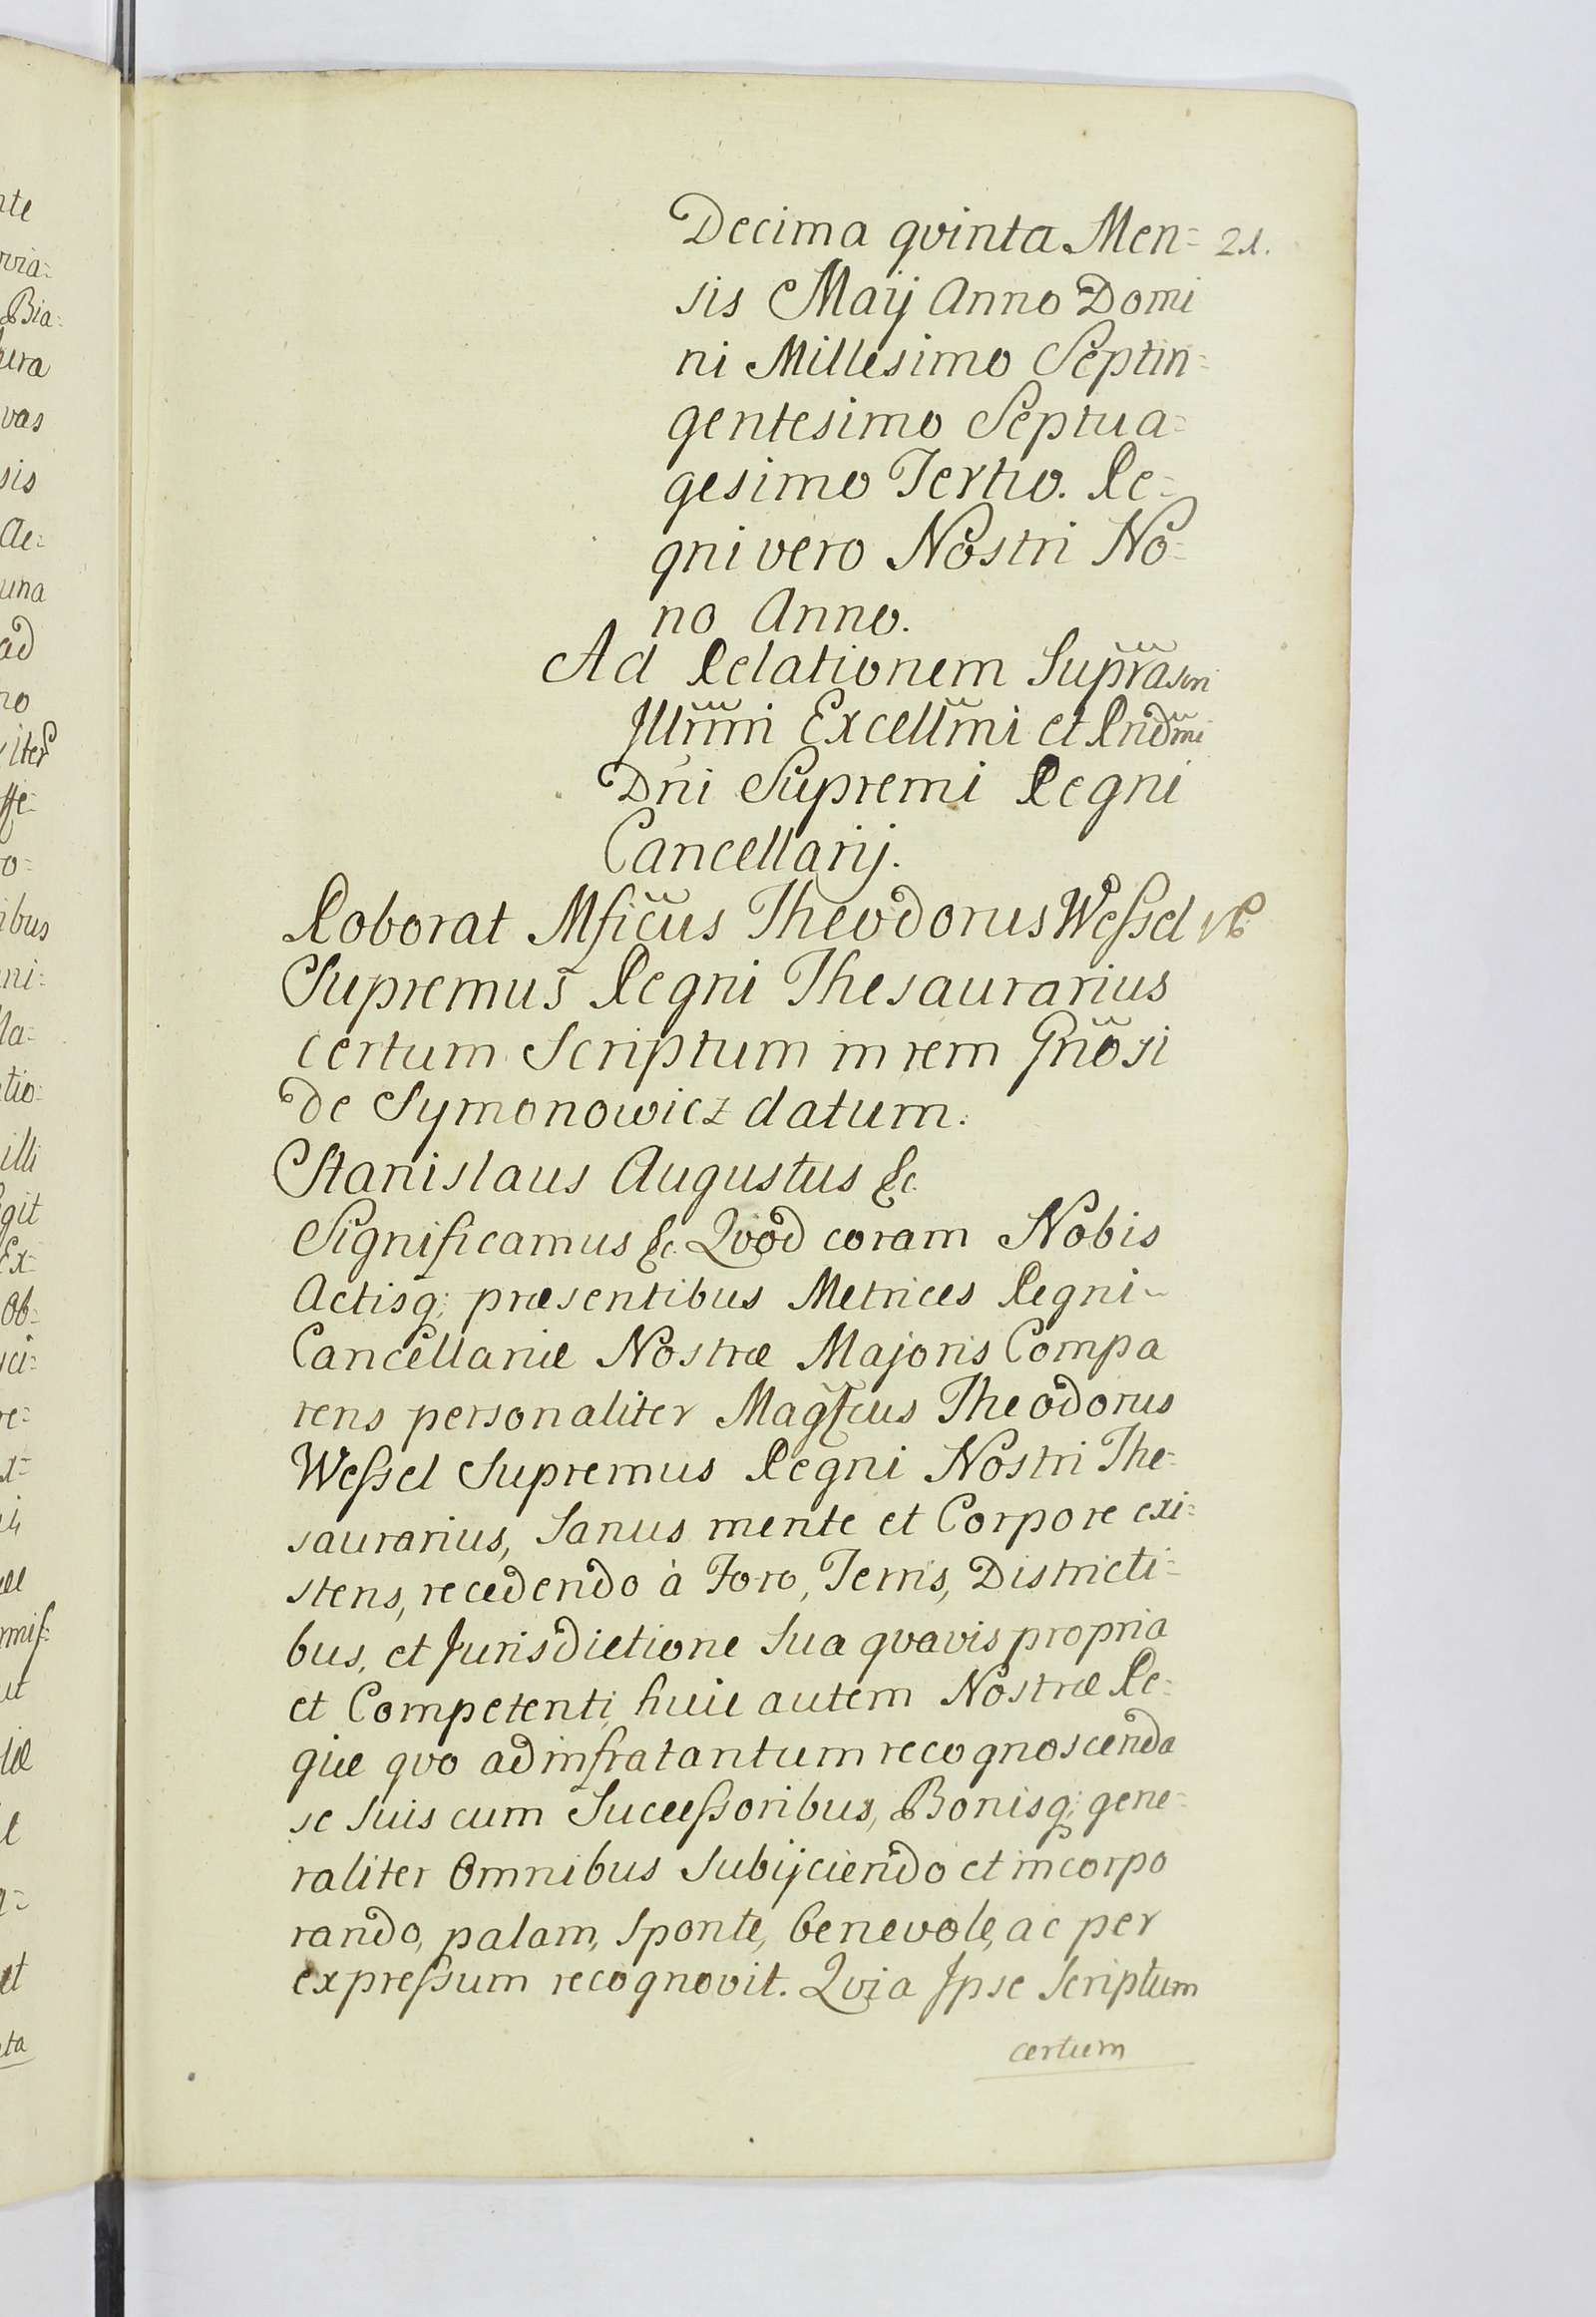 Decima qvinta Men= 21.
sis Maij Anno Domi
ni Millesimo Septin=
gentesimo Septua=
gesimo Tertio. Re=
gni vero Nostri No=
no Anno.
Ad Relationem Supra
Jllrmi Excellmi et Rndmi
Dni Supremi Regni
Cancellarij.
Roborat Mficus Theodorus Weſsel
Supremus Regni Thesaurarius
certum Scriptum in rem Gnosi
de Symonowicz datum.
Stanislaus Augustus &c.
Significamus &c. Qvod coram Nobis
Actisq; præsentibus Metrices Regni
Cancellariæ Nostræ Majoris Compa
rens personaliter Magfcus Theodorus
Weſsel Supremus Regni Nostri The=
saurarius, Sanus mente et Corpore exi=
stens, recedendo à Foro, Terris, Districti=
bus, et Jurisdictione Sua qvavis propria
et Competenti, huic autem Nostræ Re=
giæ qvo ad infra tantum recognoscenda
se Suis cum Succeſsoribus, Bonisq; gene=
raliter Omnibus Subijciendo et incorpo
rando, palam, Sponte, benevole, ac per
expreſsum recognovit. Qvia Jpse Scriptum
certum
nte
Bia=
vas
sis
Ae=
una
ad
no
ibus
ni=
la=
tio=
illi
git
Ex=
Ob=
re=
ut
et
ta